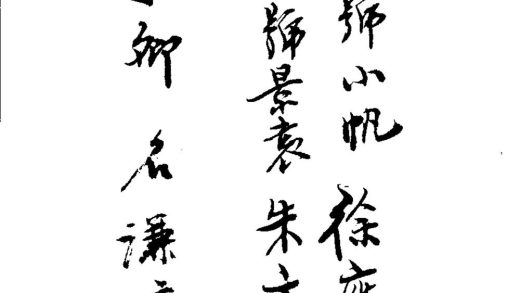 號小帆徐
號景袁朱
卿名謙